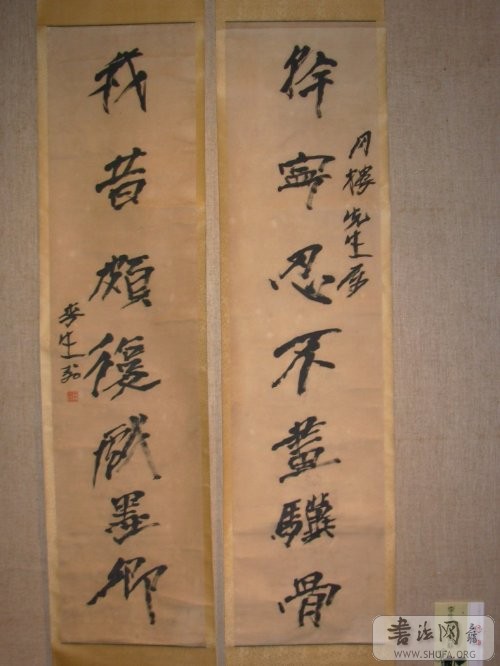 徐寧忍不畫驥骨
月樓先生属
我昔頗復戲墨卿
李生翁
書法网
WWW.SHUFA.ORG